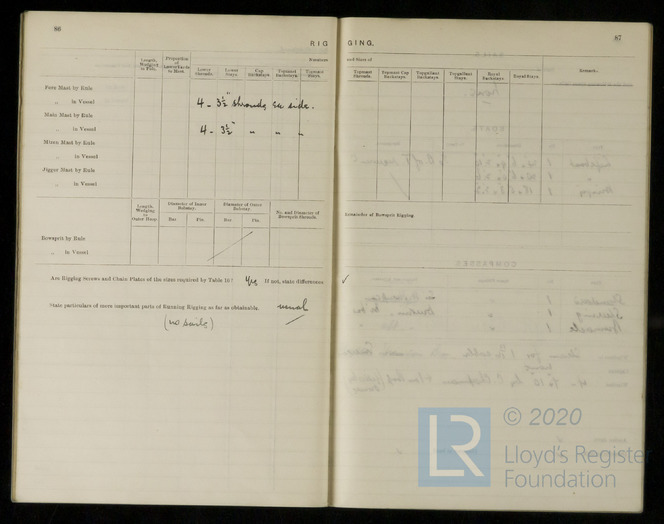 86
87
RIGGING.
Numbers and Sizes of
Length, Wedging to Eye.
Lower Shrouds.
Lower Stays.
Cap Backstays.
Topmast Backstays.
Topmast Stays.
Topmast Shrouds.
Topmast Cap Backstays.
Topgallant Backstays.
Topgallant Stays.
Royal Backstays.
Royal Stays.
Remarks.
Fore Mast by Rule
„ in Vessel 4 - 3½" shrouds ea side.
Main Mast by Rule
„ in Vessel 4 - 3½" „ „ „
Mizen Mast by Rule
„ in Vessel
Jigger Mast by Rule
„ in Vessel
Length, Wedging to Outer Hoop.
Diameter of Inner Bobstay.
Bar Pin.
Diameter of Outer Bobstay.
Bar Pin.
No. and Diameter of Bowsprit Shrouds.
Remainder of Bowsprit Rigging.
Bowsprit by Rule
„ in Vessel
Are Rigging Screws and Chain Plates of the sizes required by Table 10? Yes If not, state differences
State particulars of more important parts of Running Rigging so far as obtainable. usual
(no sails)
LR
© 2020
Lloyd's Register
Foundation